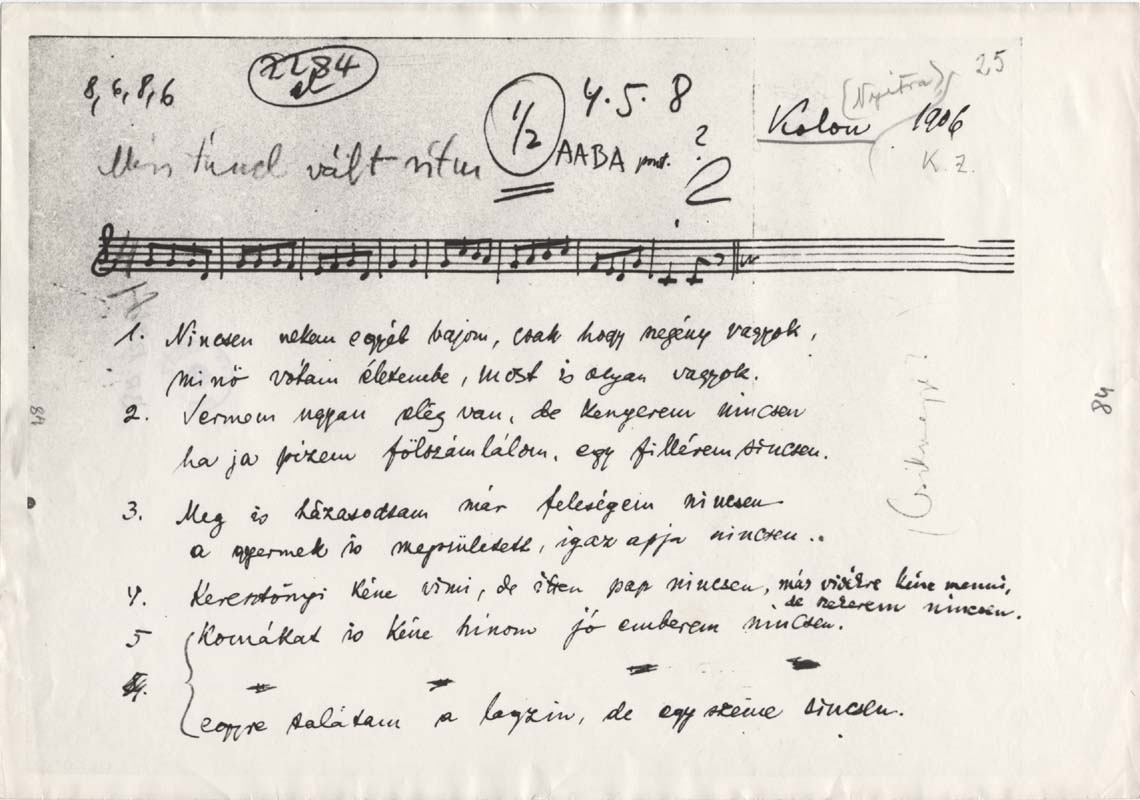 25
8, 6, 8, 6
84
1/2
4. 5. 8
(Nyitra)
Kolon 1906
K. Z.
AABA ?
vált ritm
2
1. Nincsen nekem egyéb bajom, csak hogy szegény vagyok,
minő vótam életembe, most is olyan vagyok.
2. Vermem ugyan elég van, de kenyerem nincsen
ha ja pízem fölszámlálom, egy fillérem sincsen.
3. Meg is házasodtam már feleségem nincsen
a gyermek is megsületett, igaz apja nincsen..
4. Keresztőnyi kéne vinni, de itten pap nincsen, más vidékre kéne menni,
de szekerem nincsen.
5 Komákat is kéne hínom jó emberem nincsen.
egyre talátam a lagzin, de egy szeme sincsen.
84
84